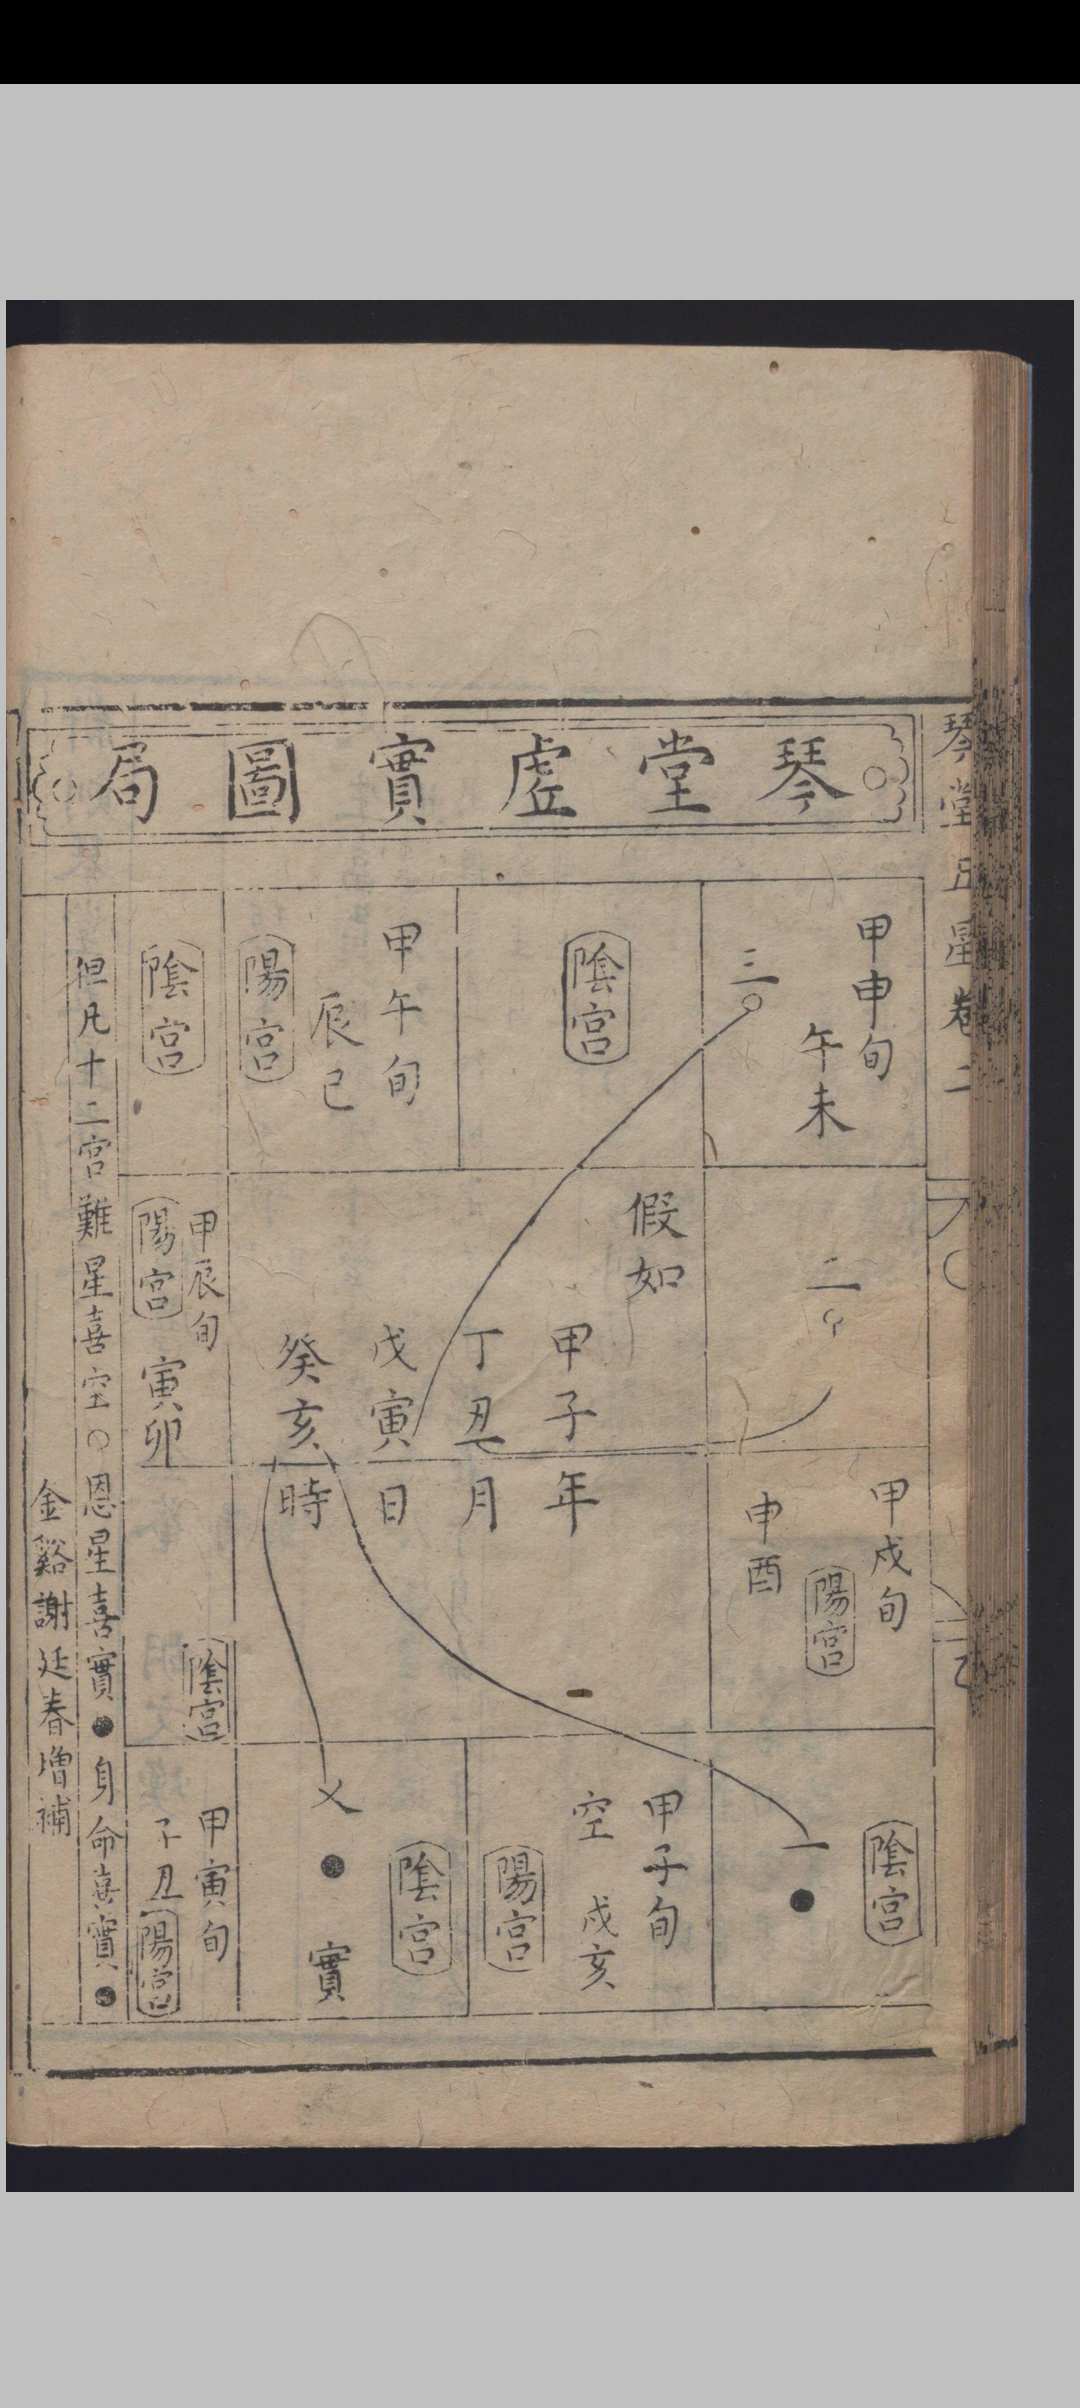 琴堂五星卷二
琴堂虛實圖局
甲申旬
午未
三○
陰宮
甲午旬
辰巳
陽宮
陰宮
二○
假如
甲子年
丁丑月
戊寅日
癸亥時
甲辰旬
陽宮
寅卯
甲戌旬
陽宮
申酉
陰宮
陰宮
一●
甲子旬
空 戌亥
陽宮
陰宮
㐅●實
甲寅旬
子丑
陽宮
但凡十二宮難星喜空○恩星喜實●身命喜實●
金谿謝廷春增補